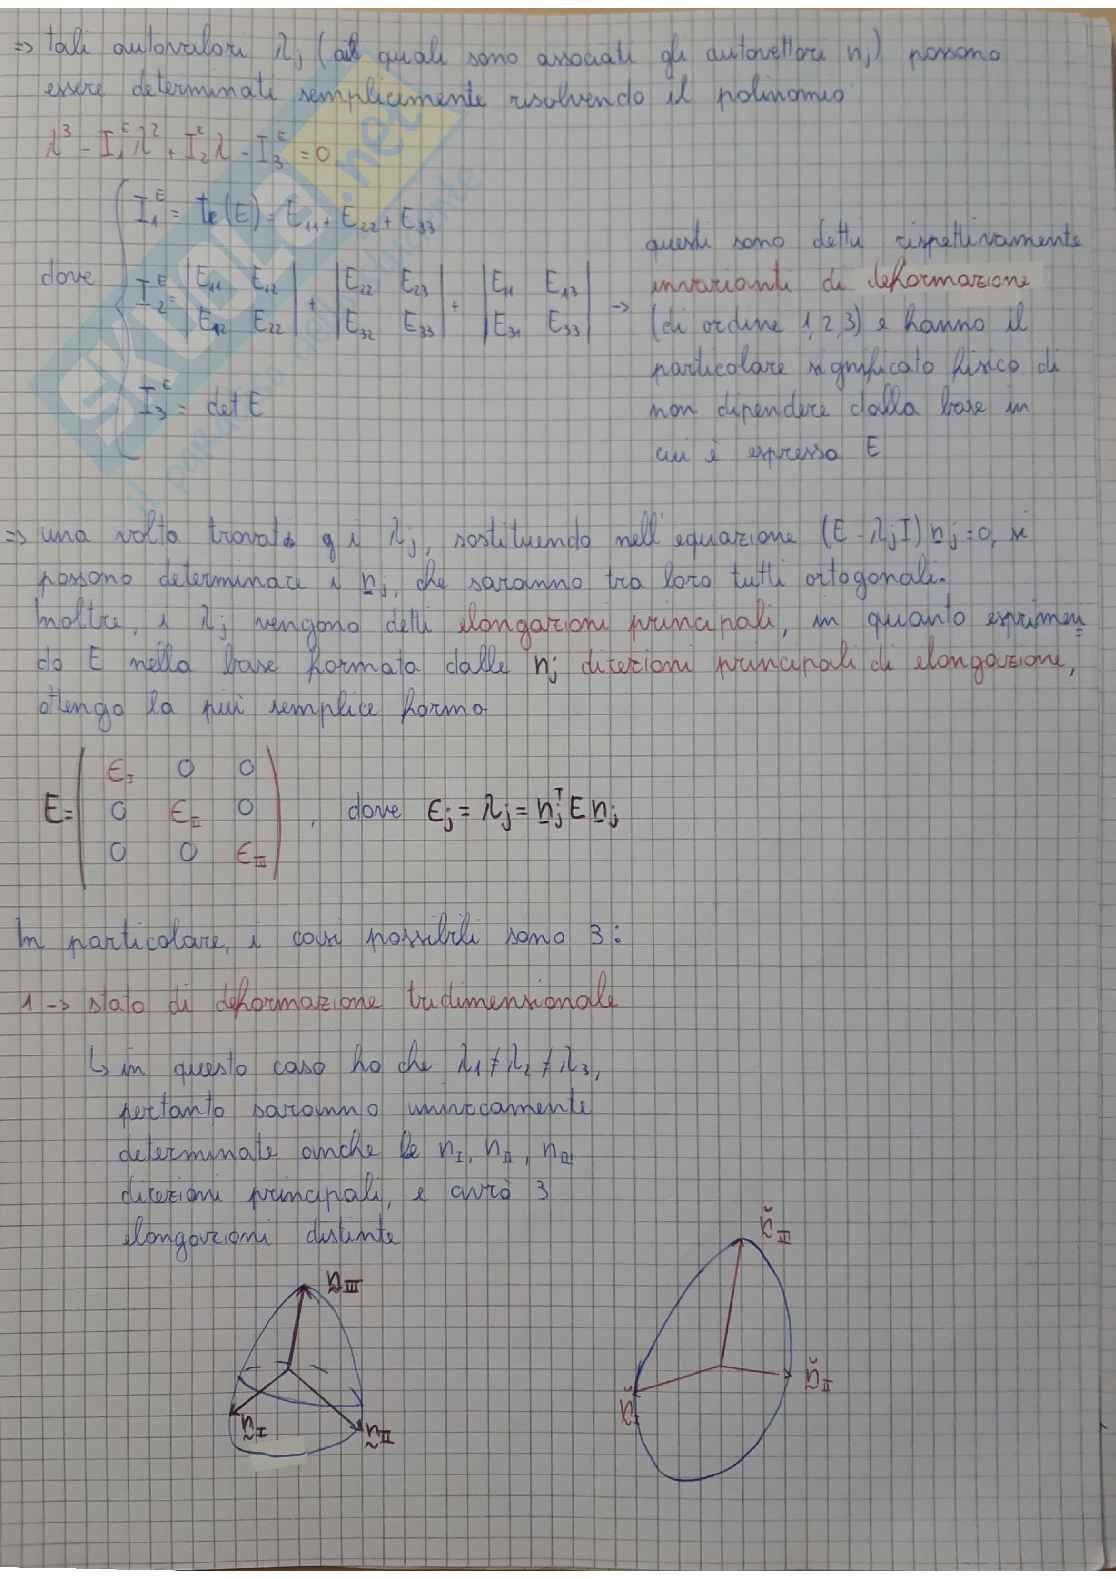 => tali autovalori λj (ai quali sono associati gli autovettori nj) possono
essere determinati semplicemente risolvendo il polinomio
λ³ - I₁ᴱλ² + I₂ᴱλ - I₃ᴱ = 0
I₁ᴱ = tr(E) = E₁₁ + E₂₂ + E₃₃
dove I₂ᴱ = |E₁₁ E₁₂| + |E₂₂ E₂₃| + |E₁₁ E₁₃| ->
|E₁₂ E₂₂| |E₃₂ E₃₃| |E₃₁ E₃₃|
I₃ᴱ = det E
questi sono detti rispettivamente
invarianti di deformazione
(di ordine 1,2,3) e hanno il
particolare significato fisico di
non dipendere dalla base in
cui è espresso E
=> una volta trovati i λj, sostituendo nell'equazione (E - λjI) nj = 0, si
possono determinare i nj, che saranno tra loro tutti ortogonali.
Inoltre, i λj vengono detti elongazioni principali, in quanto esprimen
do E nella base formata dalle nj direzioni principali di elongazione,
ottengo la più semplice forma
E = ( ϵI 0 0
0 ϵII 0
0 0 ϵIII ), dove ϵj = λj = njᵀ E nj
In particolare, i casi possibili sono 3:
1 -> stato di deformazione tridimensionale
↳ in questo caso ho che λ₁ ≠ λ₂ ≠ λ₃,
pertanto saranno univocamente
determinate anche le nI, nII, nIII
direzioni principali, e avrò 3
elongazioni distinte
nIII
nI
nII
nIII
nII
nI
SKUOLA.net